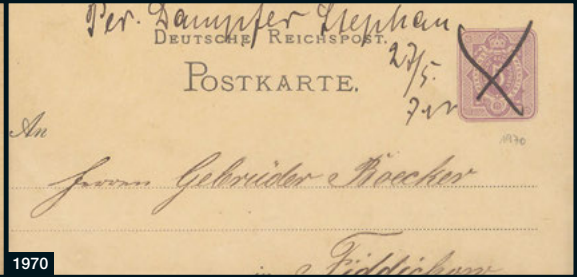 Per. Dampfer Stephan
DEUTSCHE REICHSPOST.
27/5.
POSTKARTE.
An
1970
Herren Gebrüder Boecker
in Fiddichow
1970